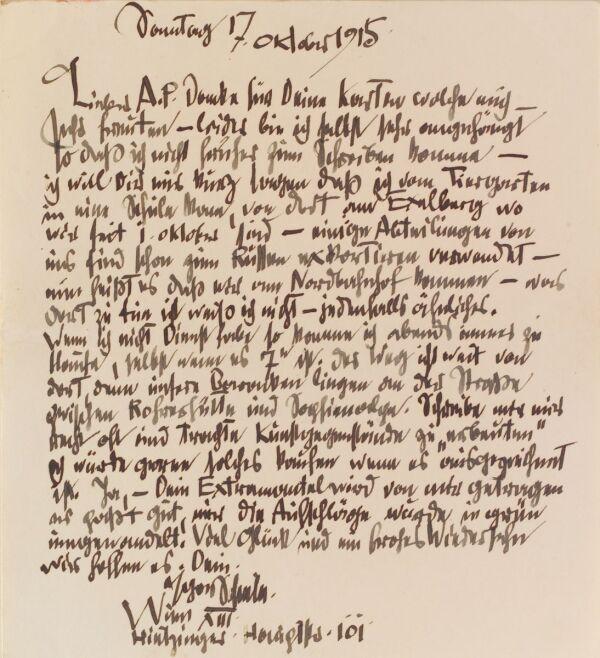 Sonntag 17. Oktober 1915
Lieber A.P. Danke für Deine Karten welche mich
sehr freuten – leider bin ich selbst sehr angehängt
so daß ich nicht früher zum Schreiben komme –
ich will Dir nur kurz sagen daß ich vom Tiergarten
in eine Schule kam, von dort am Exelberg wo
wir seit 1. Oktober sind – einige Abteilungen von
uns sind schon zum Russen exkortieren verwendet –
nun heißt es daß wir am Nordbahnhof kommen – was
dort zu tun ist weiß ich nicht – jedenfalls ähnliches.
Wenn ich nicht Dienst habe so komme ich abends immer zu
Hause, selbst wenn es 7h ist. der Weg ist weit von
dort denn unsere Baracken liegen an der Straße
zwischen Rohrerhütte und Sophienalpe. Schreibe mir nur
recht oft und trachte Kunstgegenstände zu „erbeuten"
ich würde gerne solches kaufen wenn es „ausgezeichnet
ist. Ja, – Dein Extramantel wird von mir getragen
er paßt gut, nur die Aufschläge wurde in grün
umgewandelt. Viel Glück und ein frohes Wiedersehn
wir hoffen es. Dein
Egon Schiele.
Wien XIII
Hietzinger Hauptstr. 101